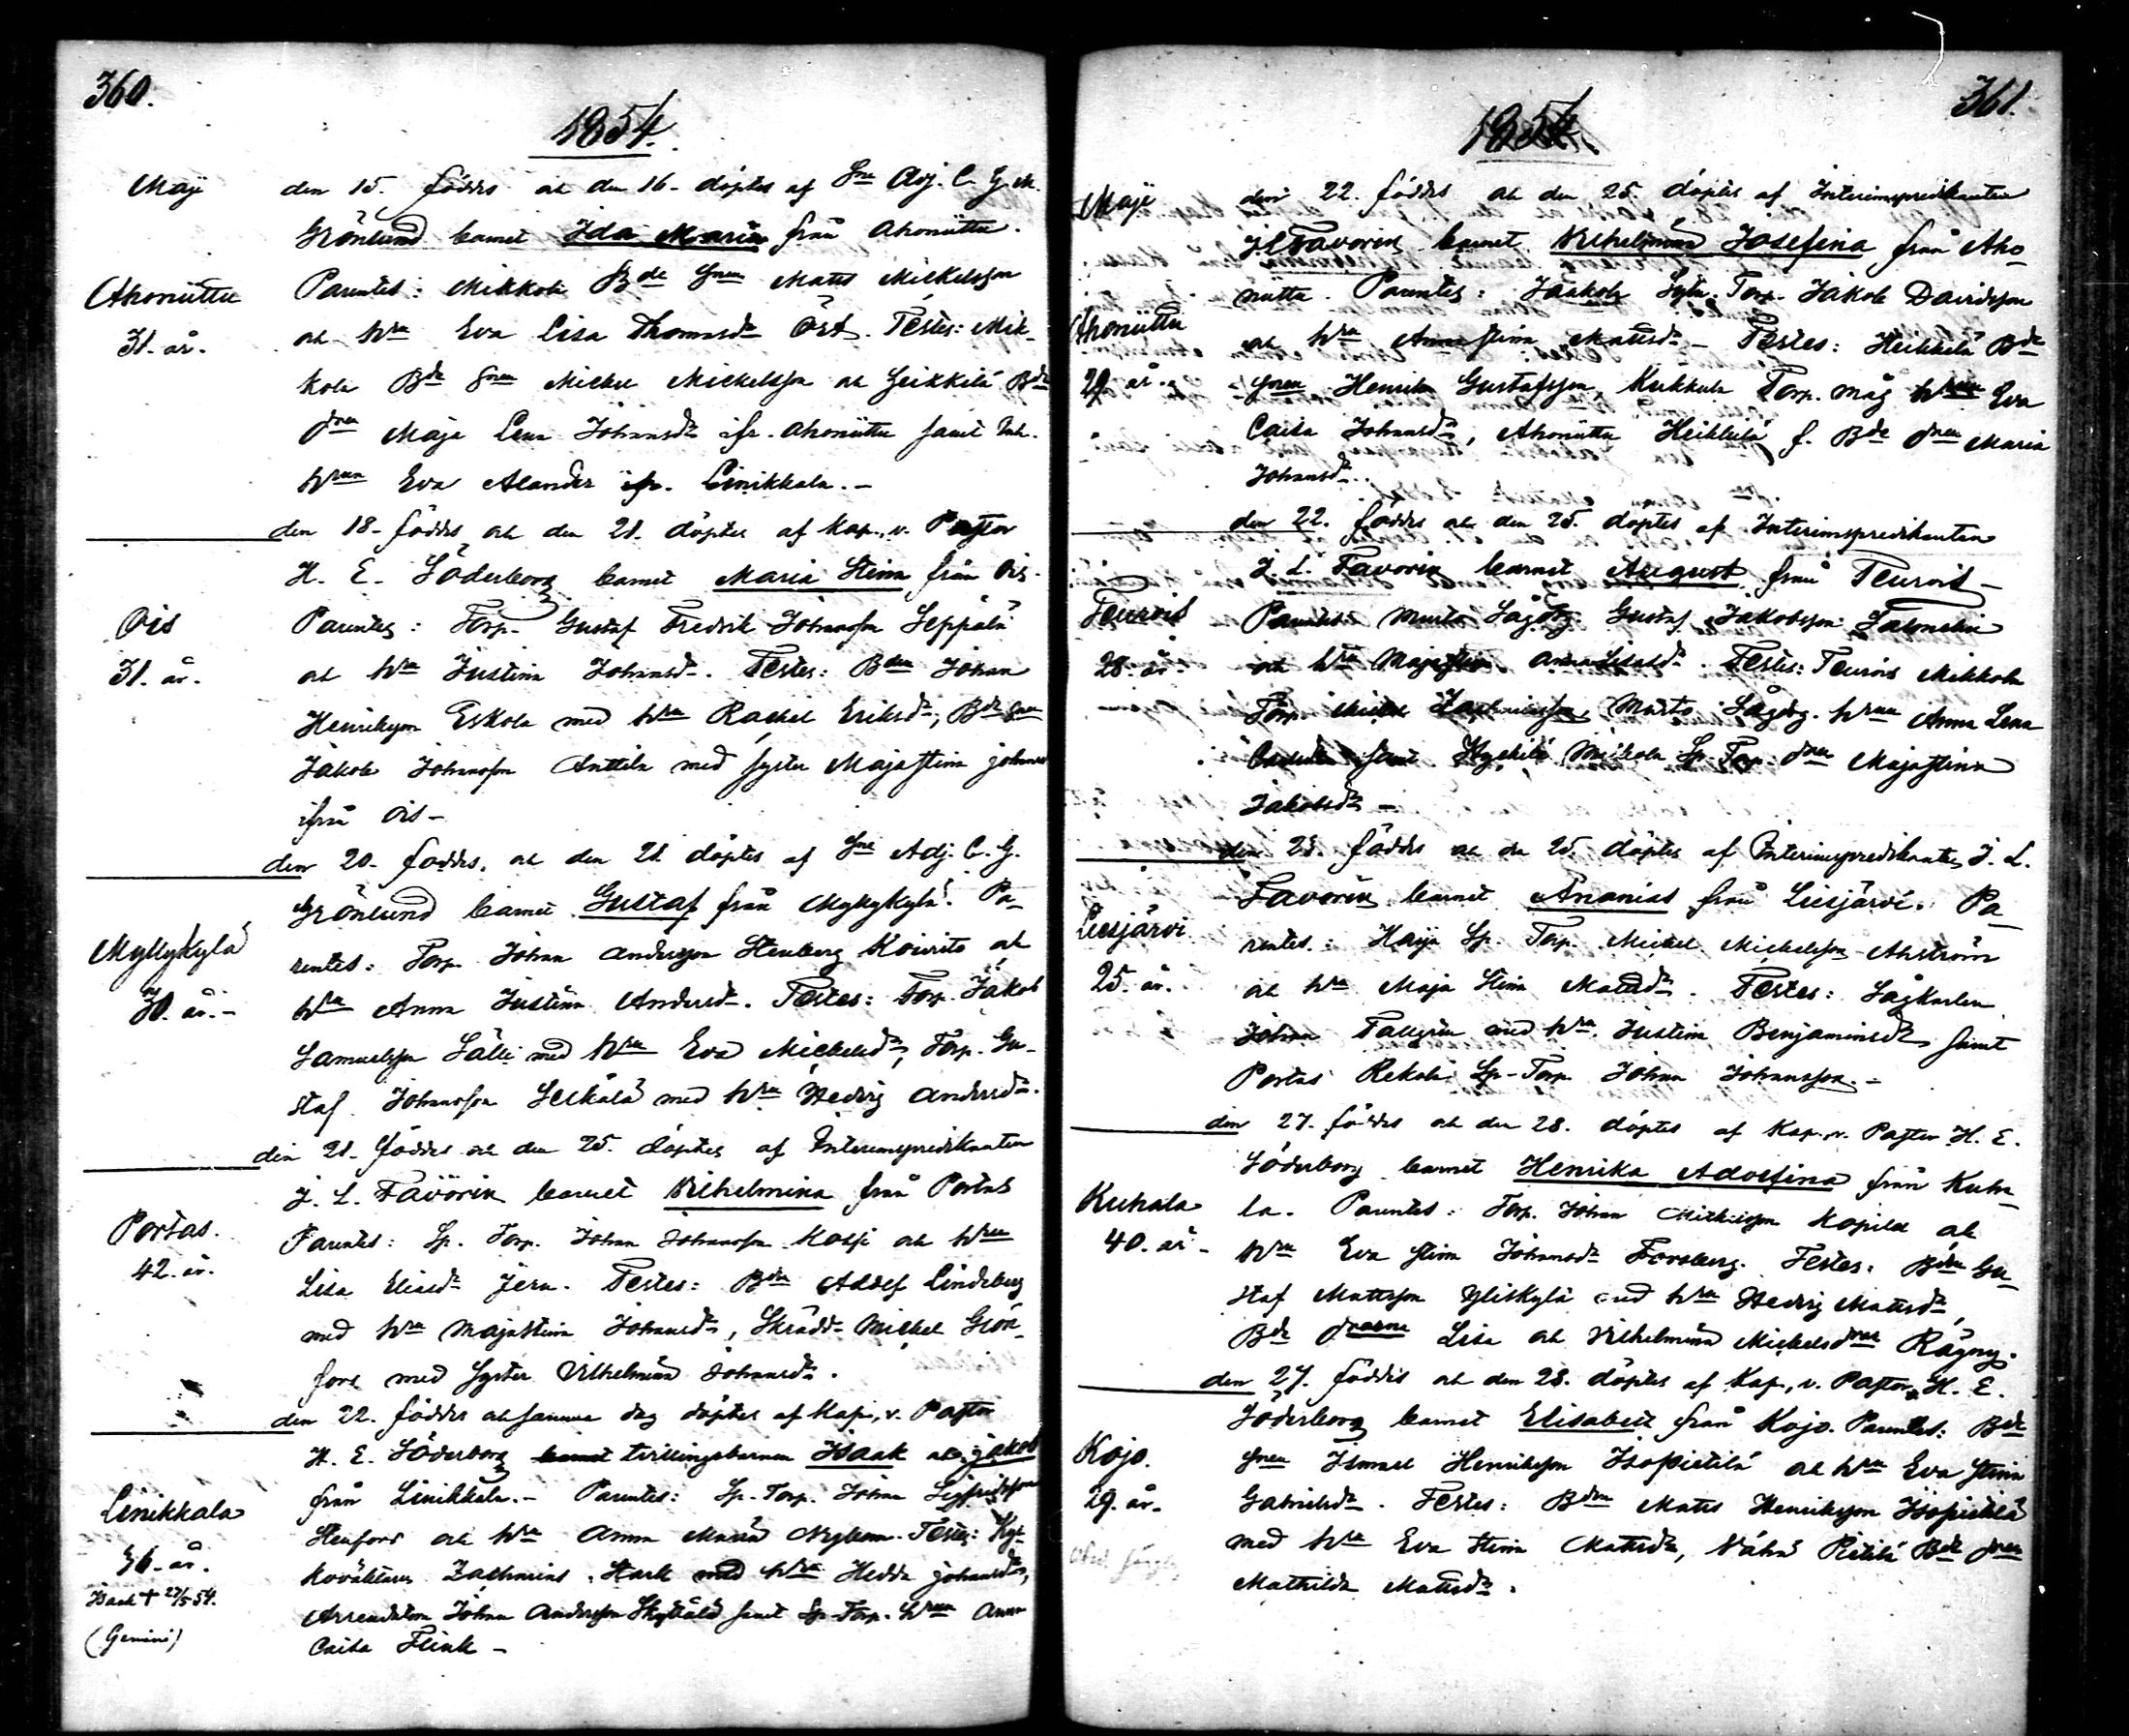 360.
1854.
Maji
den 15. föddes och den 16. döptes af Sne Adj. C. G. M.
Grönlund barnet Ida Maria från Ahoniittu.
Ahoniittu
Parentes: Mikkola Bde Snen Matts Mickelsson
31. år.
och hru Eva Lisa Thomasdr Öst. Testes: Mik-
kola Bde Snen Mickel Mickelsson och Heikkilä Bde
dren Maja Lena Johansdr ifr. Ahoniittu samt
hrun Eva Alander ifr. Linikkala. -
den 18. föddes och den 21. döptes af Kap., v. Pastor
H. E. Söderborg barnet Maria Stina från Ois.
Ois
Parentes: Torp. Gustaf Fredrik Johansson Seppälä
31. år.
och hru Justina Johansdr. Testes: Bden Johan
Henriksson Eskola med hru Rachel Eriksdr, Bde Snen
Jakob Johansson Anttila med syster Majastina Johansdr
ifrån Ois -
den 20. föddes, och den 21. döptes af Sne Adj. C. G.
Grönlund barnet Gustaf från Myllykylä. Pa-
Myllykylä
rentes: Torp. Johan Andersson Stenberg Koivisto och
30. år. -
hru Anna Justina Andersdr. Testes: Torp. Jakob
Samuelsson Sälli med hru Eva Mickelsdr, Torp. Gu-
staf Johansson med hru Hedvig Andersdr.
den 21. föddes och den 25. döptes af Interimspredikanten
J. L. Favorin barnet Wilhelmina från Portas
Portas.
Parentes: Sp. Torp. Johan Johansson och hrun
42. år.
Lisa Eliasdr Jern. Testes: Bden Adolf Lindeberg
med hru Majastina Johansdr, Skrädd. Mickel Grön-
fors med syster Vilhelmina Johansdr.
den 22. föddes och samma dag döptes af Kap., v. Pastor
H. E. Söderborg barnet tvillingsbarnen Isaak och Jakob
Linikkala
från Linikkala. - Parentes: Sp. Torp. Johan Sigfridsson
Stenfors och hru Anna Maria Nybom. Testes: Kyr-
36. år.
kovältaren Zachrias Stark med hru Hedda Johansdr,
Isaak † 27/5 54.
Arrendatorn Johan Andersson Skyttälä samt Sp. Torp. hrun Anna
(Gemini)
Caisa Flink -
361.
1854.
Maji
den 22. föddes och den 25. döptes af Interimspredikanten
J. L. Favorin barnet Wilhelmina Josefina från Aho-
niittu. Parentes: Jaakola Torp. Jakob Davidsson
Ahoniittu
och hru Annastina Mattsdr - Testes: Heikkilä Bde
29. år.
Snen Henrik Gustafsson, Kukkula Torp. måg hrun Eva
Caisa Johansdr, Ahoniittu Heikkilä f. Bde dren Maria
Johansdr.
den 22. föddes och den 25. döptes af Interimspredikanten
J. L. Favorin barnet August från Teurois -
Teurois
Parentes Murto Gustaf Jakobsson
28. år.
och hru Majastina Testes: Teurois Mikkola
Torp. Mickel Murto hrun Anna Lena
samt Mikkola Sp. Torp. dren Majastina
Jakobsdr -
den 23. föddes och den 25. döptes af Interimspredikanten J. L.
Favorin barnet Ananias från Liesjärvi. Pa-
Liesjärvi
rentes: Sp. Torp. Mickel Mickelsson Ahström
25. år.
och hru Maja Stina Mattsdr. Testes: Sågkarlen
Johan Tallgren med hru Justina Benjaminsdr, samt
Portas Rekola Sp. Torp. Johan Johansson. -
den 27. föddes och den 28. döptes af Kap., v. Pastor H. E.
Söderborg barnet Henrika Adolfina från Kuha-
Kuhala
la. Parentes: Torp. Johan Mickelsson och
40. år -
hru Eva Stina Johansdr Forsberg. Testes: Bden Gu-
staf Mattsson Yliskylä med hru Hedvig Mattsdr,
Bde drarne Lisa och Vilhelmina Mickelsdrar
den 27. föddes och den 28. döptes af Kap., v. Pastor H. E.
Söderborg barnet Elisabeth från Kojo. Parentes: Bde
Kojo.
Snen Ismael Henriksson Isopietilä och hru Eva Stina
29. år.
Gabrielsdr. Testes: Bden Matts Henriksson Isopietilä
med hru Eva Stina Mattsdr, Vähä Pietilä Bde dren
Mathilda Mattsdr.